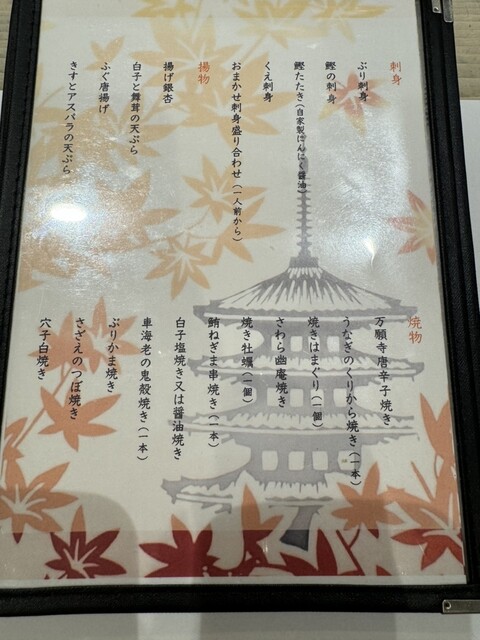 刺身
ぶり刺身
鰹の刺身
鰹たたき(自家製にんにく醤油)
くえ刺身
おまかせ刺身盛り合わせ(一人前から)
揚物
揚げ銀杏
白子と舞茸の天ぷら
ふぐ唐揚げ
きすとアスパラの天ぷら
焼物
万願寺唐辛子焼き
うなぎのくりから焼き(一本)
焼きはまぐり(一個)
さわら幽庵焼き
焼き牡蠣(一個)
鮪ねぎま串焼き(一本)
白子塩焼き又は醤油焼き
車海老の鬼殻焼き(一本)
ぶりかま焼き
さざえのつぼ焼き
穴子白焼き